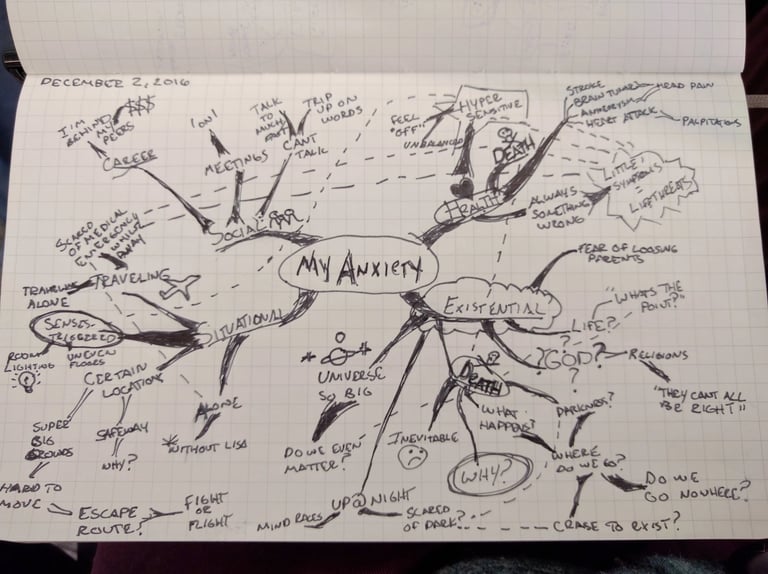 DECEMBER 2, 2016
MY ANXIETY
SOCIAL
CAREER
I'M
BEHIND
MY
PEERS
$$$
MEETINGS
1 ON 1
CANT
TALK
TALK
TO
MUCH
FAST
TRIP
UP ON
WORDS
HEALTH
HYPER
SENSITIVE
FEEL
"OFF"
UNBALANCED
DEATH
STROKE
BRAIN TUMAR
ANUERYSM
HEART ATTACK
HEAD PAIN
PALPITATIONS
ALWAYS
SOMETHING
WRONG
LITTLE
SYMPTOMS
=
LIFE THREATS
EXISTENTIAL
FEAR OF LOOSING
PARENTS
LIFE?
"WHATS THE
POINT?"
?
GOD?
?
RELIGIONS
"THEY CANT ALL
BE RIGHT"
DEATH
WHAT
HAPPENS?
DARKNESS?
WHERE
DO WE GO?
DO WE
GO NOWHERE?
CEASE TO EXIST?
WHY?
INEVITABLE
UP @ NIGHT
MIND RACES
SCARED
OF DARK?
UNIVERSE
SO BIG
DO WE EVEN
MATTER?
SITUATIONAL
TRAVELING
SCARED
OF MEDICAL
EMERGENCY
WHILE
AWAY
TRAVELING
ALONE
SENSES
TRIGGERED
ROOM
LIGHTING
UNEVEN
FLOORS
CERTAIN
LOCATIONS
SUPER
BIG
CROWDS
HARD TO
MOVE
ESCAPE
ROUTE?
FIGHT
OR
FLIGHT
SAFEWAY
WHY?
ALONE
* WITHOUT LISA